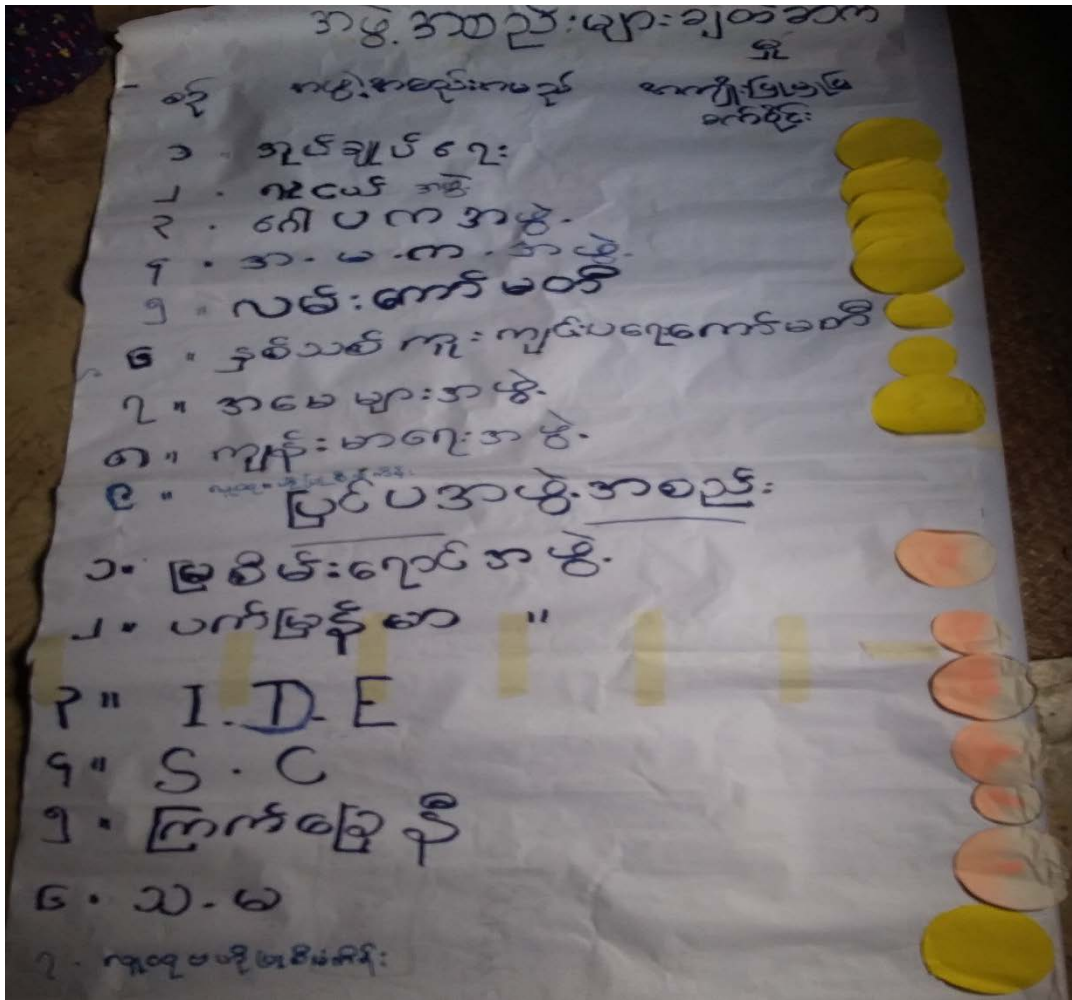 အဖွဲ့အစည်းများချိတ်ဆက်
မှု
စဉ် အဖွဲ့အစည်းအမည် အကျိုးပြုမှုပြ
စက်ဝိုင်း
၁ . အုပ်ချုပ်ရေး
၂ . လူငယ် အဖွဲ့
၃ . ဂေါပကအဖွဲ့.
၄ . အ . မ . က . အဖွဲ့.
၅ ။ လမ်းကော်မတီ
၆ ။ နှစ်သစ်ကူးကျင်းပရေးကော်မတီ
၇ ။ အမေများအဖွဲ့.
၈ ။ ကျန်းမာရေးအဖွဲ့.
၉ ။
ပြင်ပအဖွဲ့.အစည်း
၁။ မြစိမ်းရောင်အဖွဲ့.
၂။ ပက်မြန်မာ "
၃ ။ I.D.E
၄ ။ S.C
၅ ။ ကြက်ခြေနီ
၆ . သ.မ
၇ . လူထုဗဟိုပြုစီမံကိန်း